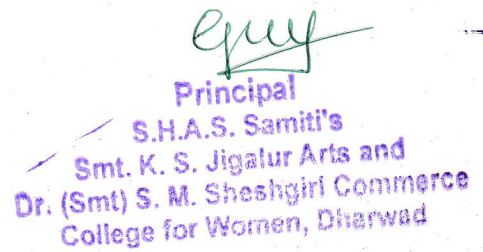 Principal
S.H.A.S. Samiti's
Smt. K. S. Jigalur Arts and
Dr. (Smt) S. M. Sheshgiri Commerce
College for Women, Dharwad